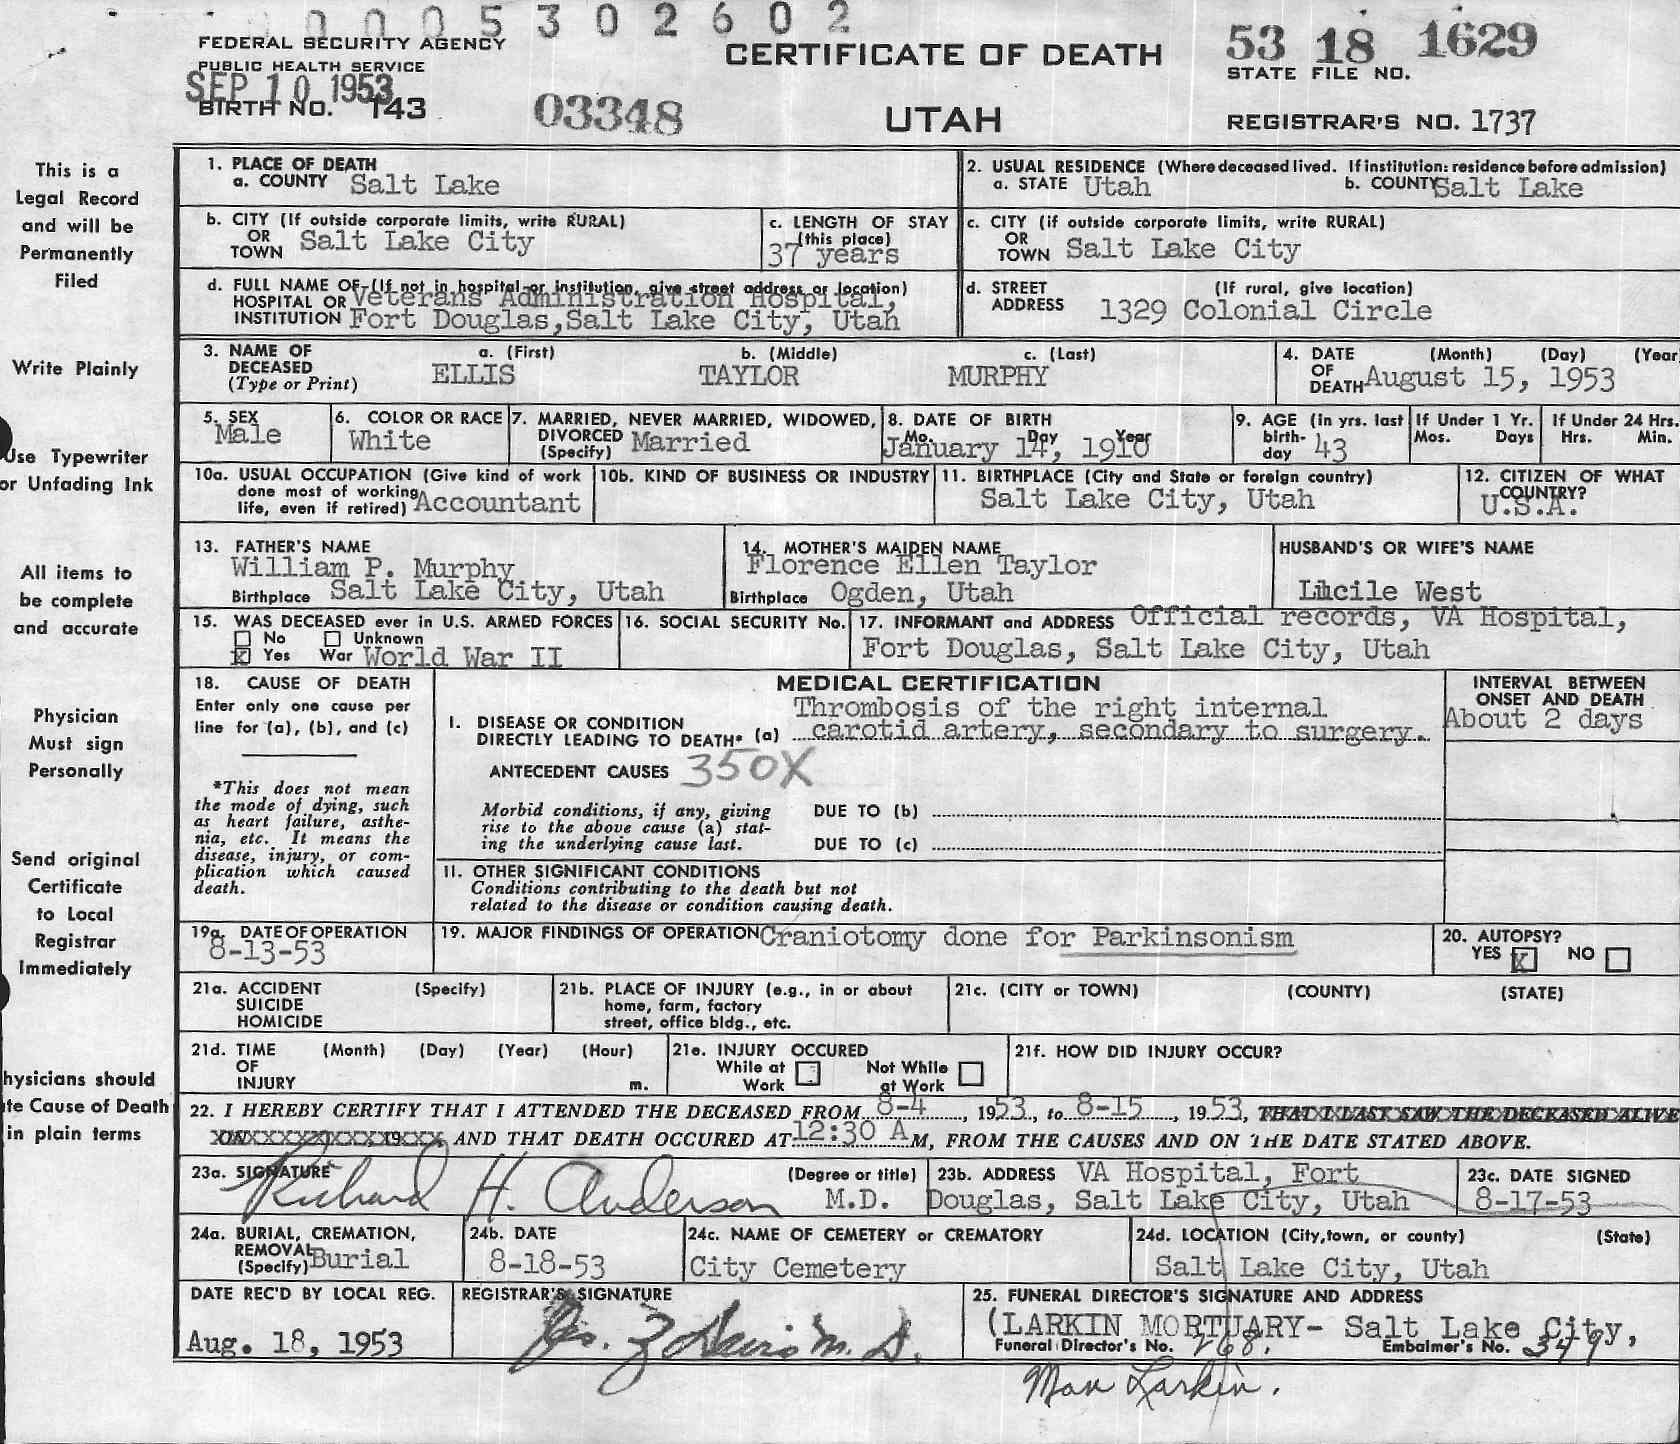 0005302602
FEDERAL SECURITY AGENCY
PUBLIC HEALTH SERVICE
SEP 10 1953
BIRTH NO. 143
03348
CERTIFICATE OF DEATH
UTAH
53 18 1629
STATE FILE NO.
REGISTRAR'S NO. 1737
This is a
Legal Record
and will be
Permanently
Filed
Write Plainly
Use Typewriter
or Unfading Ink
All items to
be complete
and accurate
Physician
Must sign
Personally
Send original
Certificate
to Local
Registrar
Immediately
hysicians should
te Cause of Death
in plain terms
1. PLACE OF DEATH
a. COUNTY Salt Lake
2. USUAL RESIDENCE (Where deceased lived. If institution: residence before admission)
a. STATE Utah b. COUNTY Salt Lake
b. CITY (If outside corporate limits, write RURAL)
OR
TOWN Salt Lake City
c. LENGTH OF STAY
(this place)
37 years
c. CITY (if outside corporate limits, write RURAL)
OR
TOWN Salt Lake City
d. FULL NAME OF (If not in hospital or institution, give street address or location)
HOSPITAL OR Veterans Administration Hospital,
INSTITUTION Fort Douglas, Salt Lake City, Utah
d. STREET (If rural, give location)
ADDRESS 1329 Colonial Circle
3. NAME OF DECEASED (Type or Print)
a. (First) b. (Middle) c. (Last)
ELLIS TAYLOR MURPHY
4. DATE OF DEATH (Month) (Day) (Year
August 15, 1953
5. SEX
Male
6. COLOR OR RACE
White
7. MARRIED, NEVER MARRIED, WIDOWED,
DIVORCED (Specify) Married
8. DATE OF BIRTH
Mo. Day Year
January 14, 1910
9. AGE (in yrs. last
birth-
day 43
If Under 1 Yr.
Mos. Days
If Under 24 Hrs.
Hrs. Min.
10a. USUAL OCCUPATION (Give kind of work
done most of working
life, even if retired) Accountant
10b. KIND OF BUSINESS OR INDUSTRY
11. BIRTHPLACE (City and State or foreign country)
Salt Lake City, Utah
12. CITIZEN OF WHAT
COUNTRY?
U.S.A.
13. FATHER'S NAME
William P. Murphy
Birthplace Salt Lake City, Utah
14. MOTHER'S MAIDEN NAME
Florence Ellen Taylor
Birthplace Ogden, Utah
HUSBAND'S OR WIFE'S NAME
Lucile West
15. WAS DECEASED ever in U.S. ARMED FORCES
No Unknown
X Yes War World War II
16. SOCIAL SECURITY No.
17. INFORMANT and ADDRESS Official records, VA Hospital,
Fort Douglas, Salt Lake City, Utah
18. CAUSE OF DEATH
Enter only one cause per
line for (a), (b), and (c)
*This does not mean
the mode of dying, such
as heart failure, asthe-
nia, etc. It means the
disease, injury, or com-
plication which caused
death.
MEDICAL CERTIFICATION
I. DISEASE OR CONDITION
DIRECTLY LEADING TO DEATH* (a)
Thrombosis of the right internal
carotid artery, secondary to surgery.
ANTECEDENT CAUSES 350X
Morbid conditions, if any, giving
rise to the above cause (a) stat-
ing the underlying cause last.
DUE TO (b)
DUE TO (c)
II. OTHER SIGNIFICANT CONDITIONS
Conditions contributing to the death but not
related to the disease or condition causing death.
INTERVAL BETWEEN
ONSET AND DEATH
About 2 days
19a. DATE OF OPERATION
8-13-53
19. MAJOR FINDINGS OF OPERATION Craniotomy done for Parkinsonism
20. AUTOPSY?
YES X NO
21a. ACCIDENT (Specify)
SUICIDE
HOMICIDE
21b. PLACE OF INJURY (e.g., in or about
home, farm, factory
street, office bldg., etc.
21c. (CITY or TOWN) (COUNTY) (STATE)
21d. TIME (Month) (Day) (Year) (Hour)
OF
INJURY m.
21e. INJURY OCCURED
While at Work
Not While at Work
21f. HOW DID INJURY OCCUR?
22. I HEREBY CERTIFY THAT I ATTENDED THE DECEASED FROM 8-4, 1953, to 8-15, 1953, THAT I LAST SAW THE DECEASED ALIVE
AND THAT DEATH OCCURED AT 12:30 A M, FROM THE CAUSES AND ON THE DATE STATED ABOVE.
23a. SIGNATURE (Degree or title)
Richard H. Anderson M.D.
23b. ADDRESS VA Hospital, Fort
Douglas, Salt Lake City, Utah
23c. DATE SIGNED
8-17-53
24a. BURIAL, CREMATION,
REMOVAL (Specify) Burial
24b. DATE
8-18-53
24c. NAME OF CEMETERY or CREMATORY
City Cemetery
24d. LOCATION (City, town, or county) (State)
Salt Lake City, Utah
DATE REC'D BY LOCAL REG.
Aug. 18, 1953
REGISTRAR'S SIGNATURE
25. FUNERAL DIRECTOR'S SIGNATURE AND ADDRESS
(LARKIN MORTUARY- Salt Lake City,
Funeral Director's No. 268. Embalmer's No. 349
Larkin.